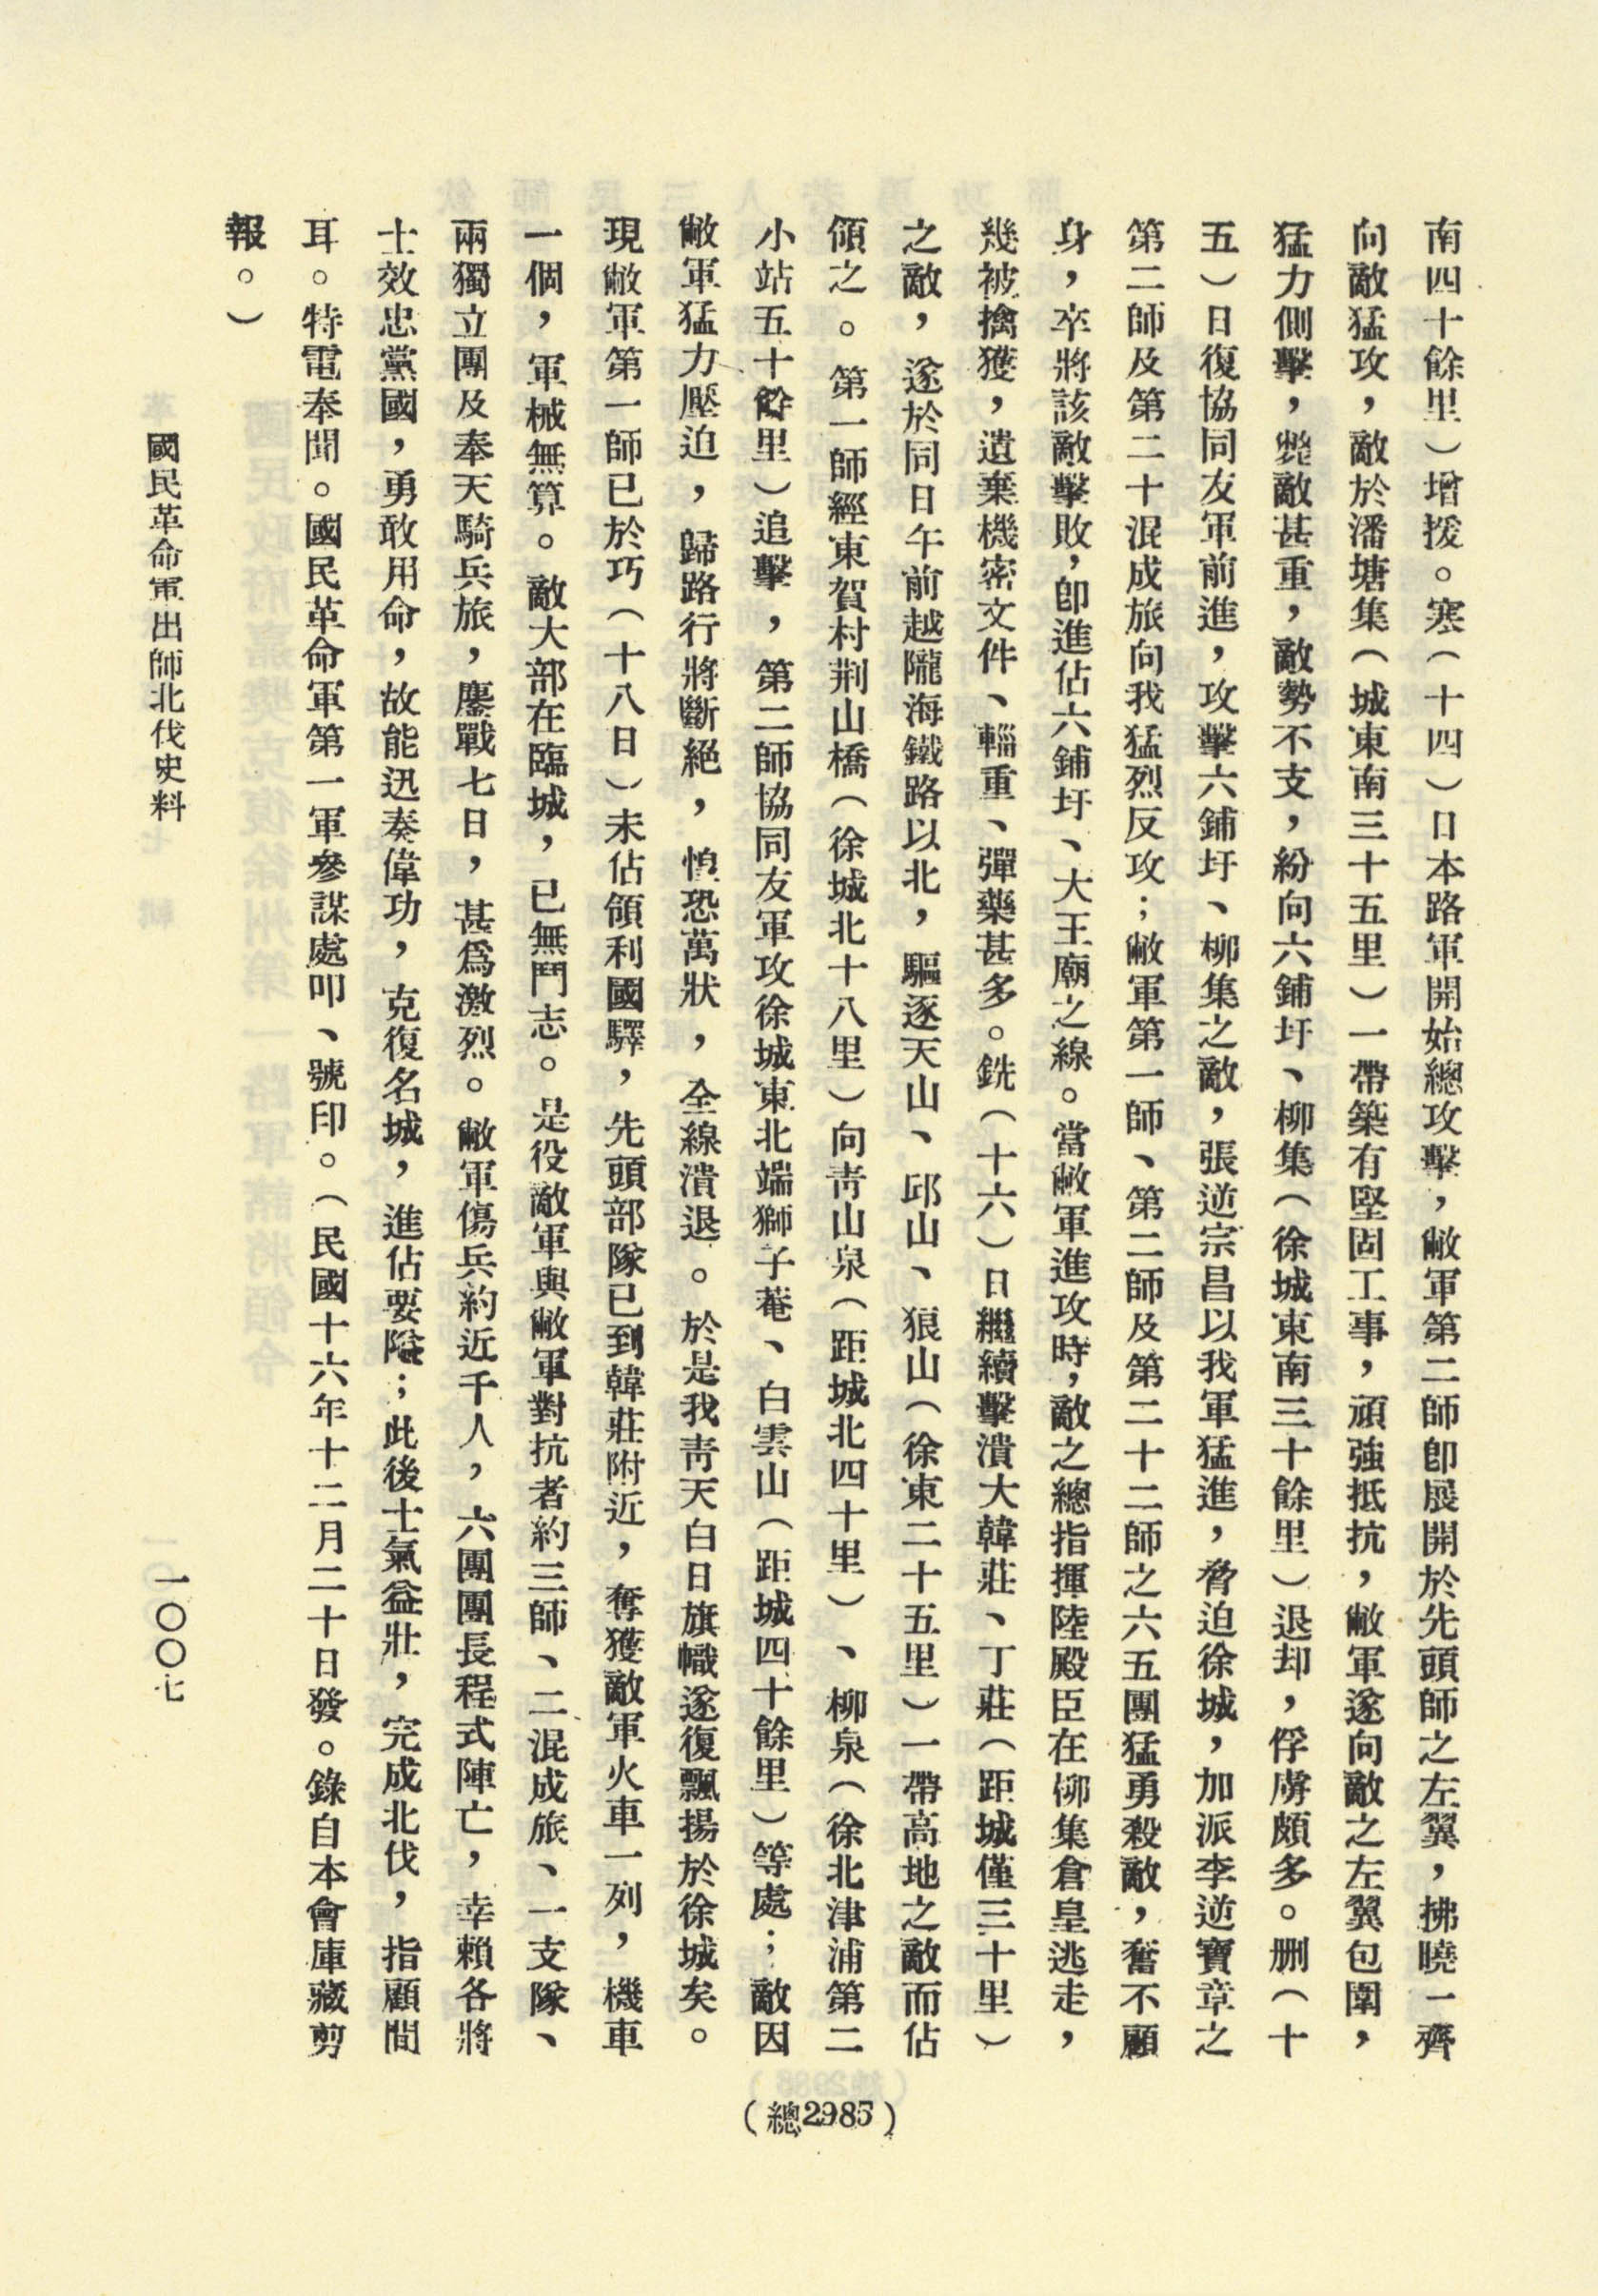 南四十餘里）增援。寒（十四）日本路軍開始總攻擊，敝軍第二師卽展開於先頭師之左翼，拂曉一齊
向敵猛攻，敵於潘塘集（城東南三十五里）一帶築有堅固工事，頑強抵抗，敝軍遂向敵之左翼包圍，
猛力側擊，斃敵甚重，敵勢不支，紛向六鋪圩、柳集（徐城東南三十餘里）退却，俘虜頗多。删（十
五）日復協同友軍前進，攻擊六鋪圩、柳集之敵，張逆宗昌以我軍猛進，脅迫徐城，加派李逆寶章之
第二師及第二十混成旅向我猛烈反攻；敝軍第一師、第二師及第二十二師之六五團猛勇殺敵，奮不顧
身，卒將該敵擊敗，卽進佔六鋪圩、大王廟之線。當敝軍進攻時，敵之總指揮陸殿臣在柳集倉皇逃走，
幾被擒獲，遺棄機密文件、輜重、彈藥甚多。銑（十六）日繼續擊潰大韓莊、丁莊（距城僅三十里）
之敵，遂於同日午前越隴海鐵路以北，驅逐天山、邱山、狼山（徐東二十五里）一帶高地之敵而佔
領之。第一師經東賀村荆山橋（徐城北十八里）向靑山泉（距城北四十里）、柳泉（徐北津浦第二
小站五十餘里）追擊，第二師協同友軍攻徐城東北端獅子菴、白雲山（距城四十餘里）等處；敵因
敝軍猛力壓迫，歸路行將斷絕，惶恐萬狀，全線潰退。於是我靑天白日旗幟遂復飄揚於徐城矣。
現敝軍第一師已於巧（十八日）未佔領利國驛，先頭部隊已到韓莊附近，奪獲敵軍火車一列，機車
一個，軍械無算。敵大部在臨城，已無鬥志。是役敵軍與敝軍對抗者約三師、二混成旅、一支隊、
兩獨立團及奉天騎兵旅，鏖戰七日，甚爲激烈。敝軍傷兵約近千人，六團團長程式陣亡，幸賴各將
士效忠黨國，勇敢用命，故能迅奏偉功，克復名城，進佔要隘；此後士氣益壯，完成北伐，指顧間
耳。特電奉聞。國民革命軍第一軍參謀處叩、號印。（民國十六年十二月二十日發。錄自本會庫藏剪
報。）
國民革命軍出師北伐史料
一〇〇七
（總2985）